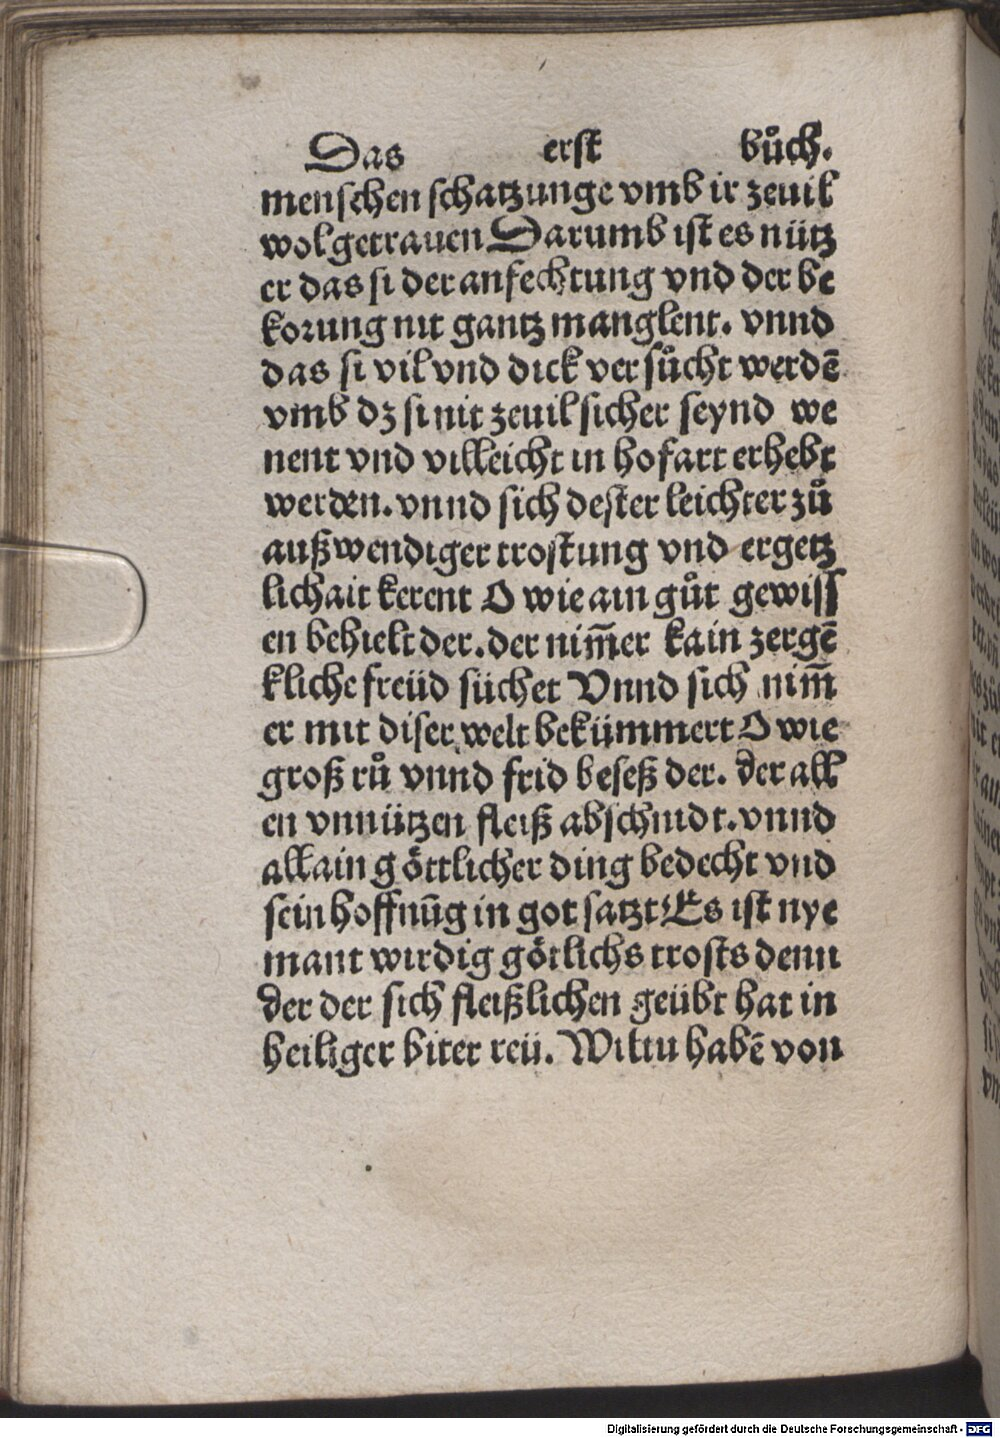 Das erst bůch.
menschen schatzunge vmb ir zeuil
wolgetrauen Darumb ist es nütz
er das si der anfechtung vnd der be
korung nit gantz manglent. vnnd
das si vil vnd dick versůcht werdē
vmb dz si nit zeuil sicher seynd we
nent vnd villeicht in hofart erhebt
werden. vnnd sich dester leichter zů
außwendiger trostung vnd ergetz
lichait kerent O wie ain gůt gewiss
en behielt der. der nim̄er kain zergē
kliche freüd sůchet Vnnd sich nim̄
er mit diser welt bekümmert O wie
groß rů vnnd frid beseß der. der all
en vnnützen fleiß abschnidt. vnnd
allain göttlicher ding bedecht vnd
sein hoffnūg in got satzt Es ist nye
mant wirdig götlichs trosts denn
der der sich fleißlichen geübt hat in
heiliger biter reü. Wiltu habē von
Digitalisierung gefördert durch die Deutsche Forschungsgemeinschaft - DFG